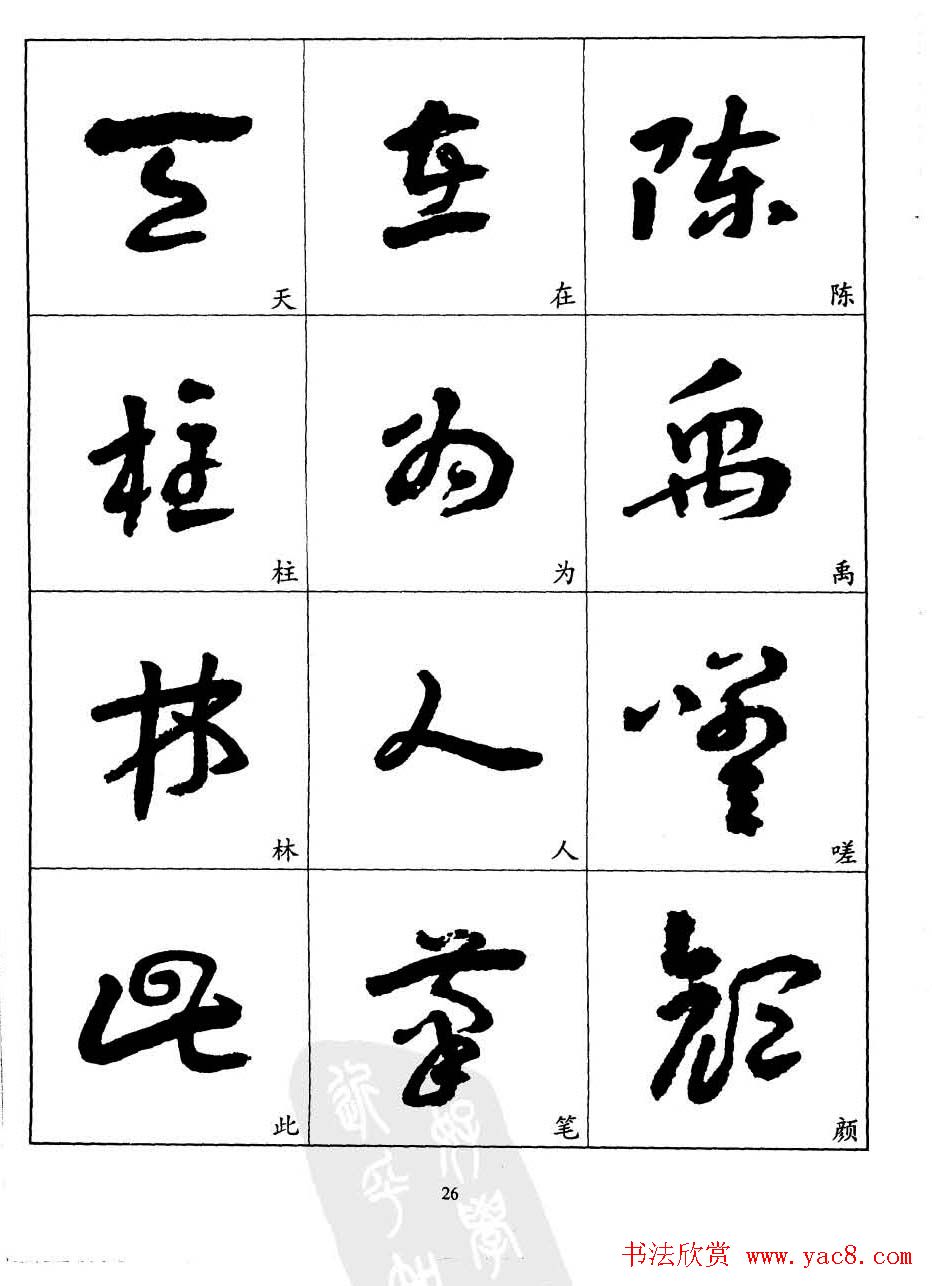 陈
陈
禹
禹
嗟
嗟
颜
颜
在
在
为
为
人
人
笔
笔
天
天
柱
柱
林
林
此
此
26
书法欣赏 www.yac8.com